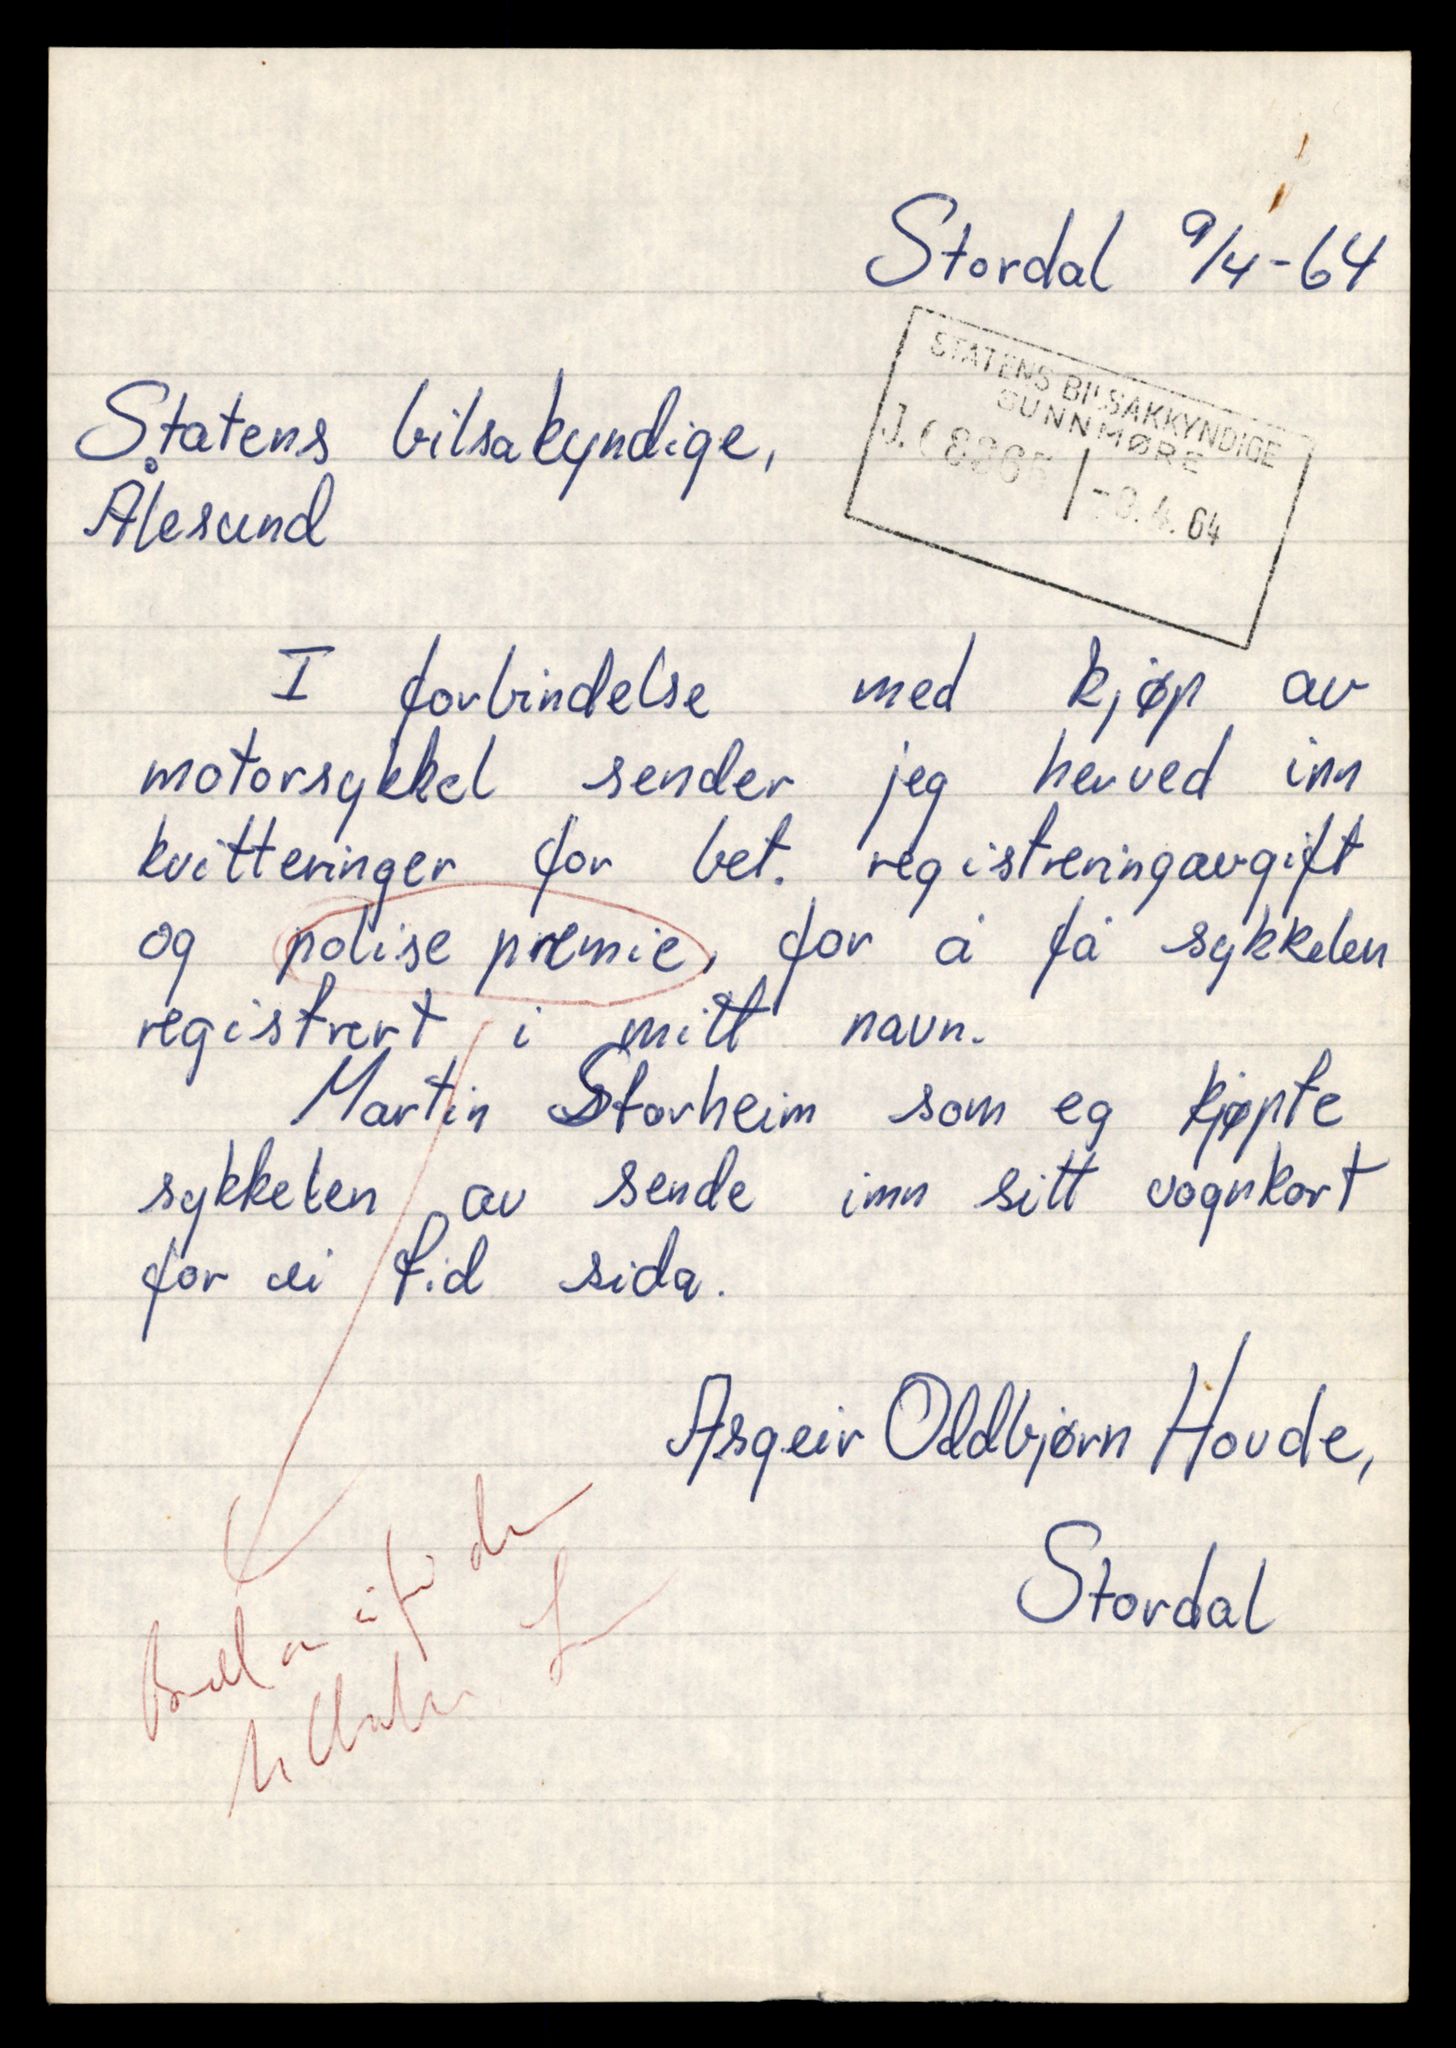 Stordal 9/4-64
STATENS BILSAKKYNDIGE
SUNNMØRE
J.
4. 64
Statens bilsakyndige,
Ålesund
I forbindelse med kjøp av
motorsykkel sender jeg herved inn
kvitteringer for bet. registreringavgift
og polise premie, for å få sykkelen
registrert i mitt navn.
Martin Storheim som eg kjøpte
sykkelen av sende inn sitt vognkort
for ei tid sida.
Asgeir Oddbjørn Hovde,
Stordal